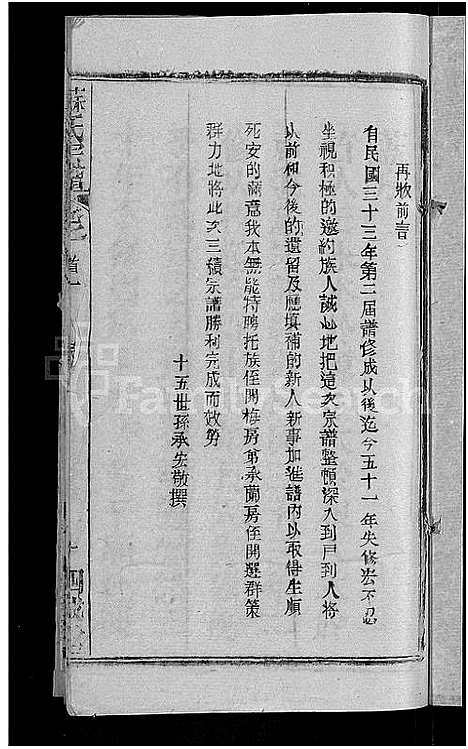 再牧前言
自民國三十三年第二屆譜修成以後迄今五十一年失修宏不忍
坐視积極的邀約族人誠心地把這次宗譜整頓深入到戸到人将
以前和今後的遺留及應填補的新人新事加進譜内以取得生順
死安的啇意我本無能特聘托族侄開梅房弟承蘭房侄開選群策
群力地將此次三續宗譜勝利完成而效勞
十五世孫承宏敬撰
蘇氏宗譜
FamilySearch